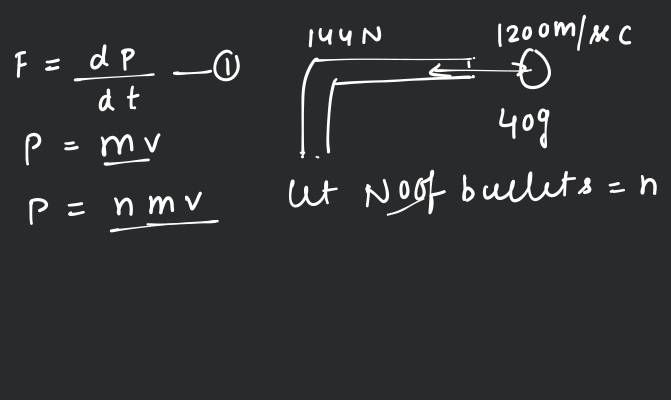 F = dP/dt —①
144N
1200m/sec
40g
P = mv
P = nmv
let No of bullets = n